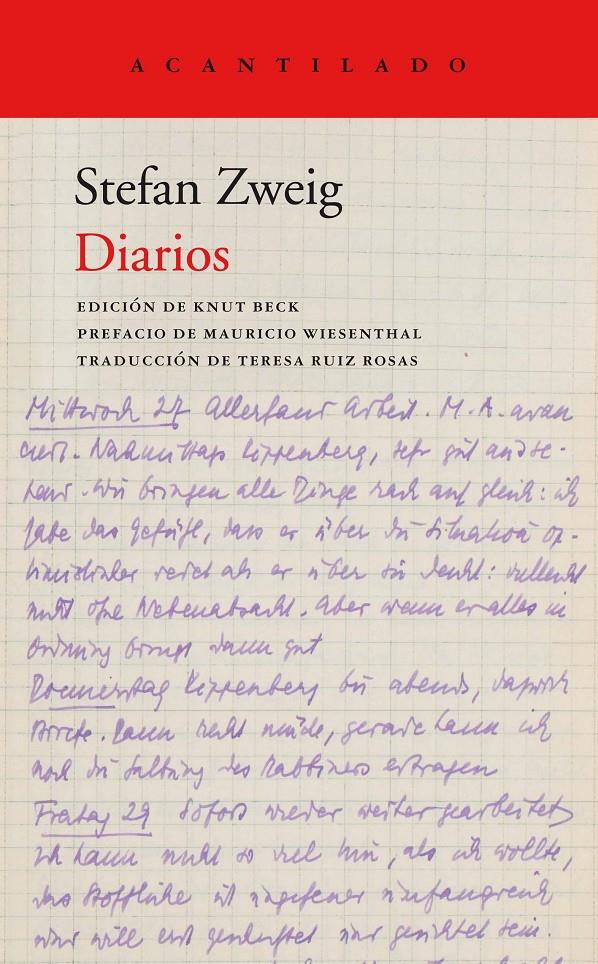 ACANTILADO
Stefan Zweig
Diarios
EDICIÓN DE KNUT BECK
PREFACIO DE MAURICIO WIESENTHAL
TRADUCCIÓN DE TERESA RUIZ ROSAS
Mittwoch 27 Allerhand Arbeit. M. A. avan
ciert. Nachmittags Kippenberg, sehr gut
Wir bringen alle Dinge rasch auf gleich: ich
habe das Gefühl, dass er über die Situation op-
timistischer redet als er über sie denkt: vielleicht
nicht ohne Nebenabsicht. Aber wenn er alles in
Ordnung bringt dann gut
Donnerstag Kippenberg bis abends,
Briefe. Dann recht müde, gerade kann ich
noch die des Rabbiners ertragen
Freitag 29 Sofort wieder weiter gearbeitet
ich kann nicht so viel thun, als ich wollte,
das Stoffliche ist ungeheuer umfangreich
und will erst gesichtet sein.